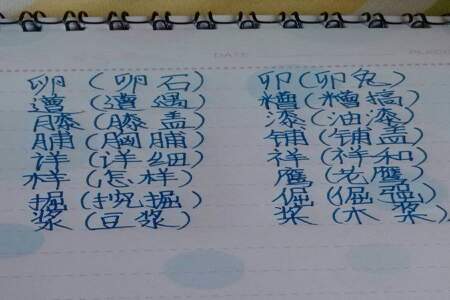 DATE
卵(卵石) 卯(卯兔)
遭(遭遇) 糟(糟搞)
膝(膝盖) 漆(油漆)
脯(胸脯) 铺(铺盖)
详(详细) 祥(祥和)
样(怎样) 鹰(老鹰)
掘(挖掘) 倔(倔强)
浆(豆浆) 桨(木桨)